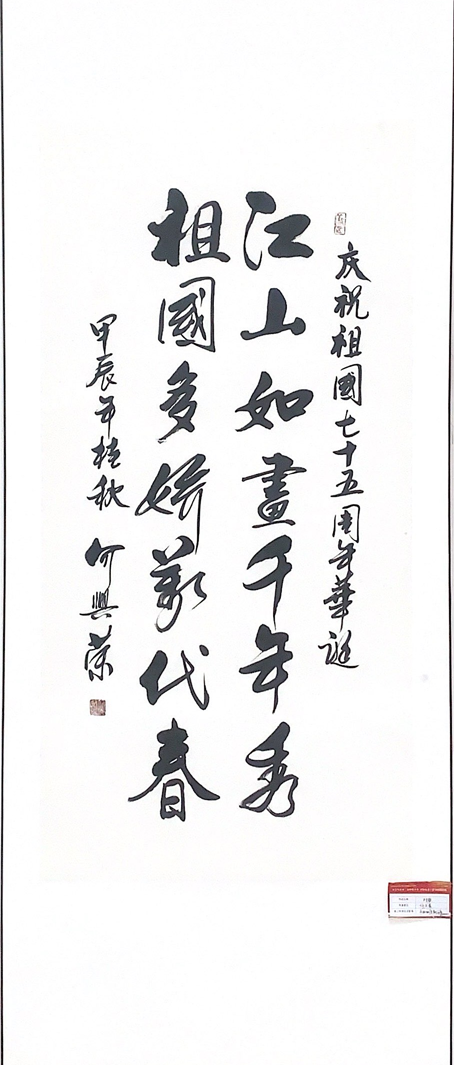 庆祝祖國七十五周年華誕
江山如畫千年秀
祖國多娇萬代春
甲辰年桂秋 何興荣